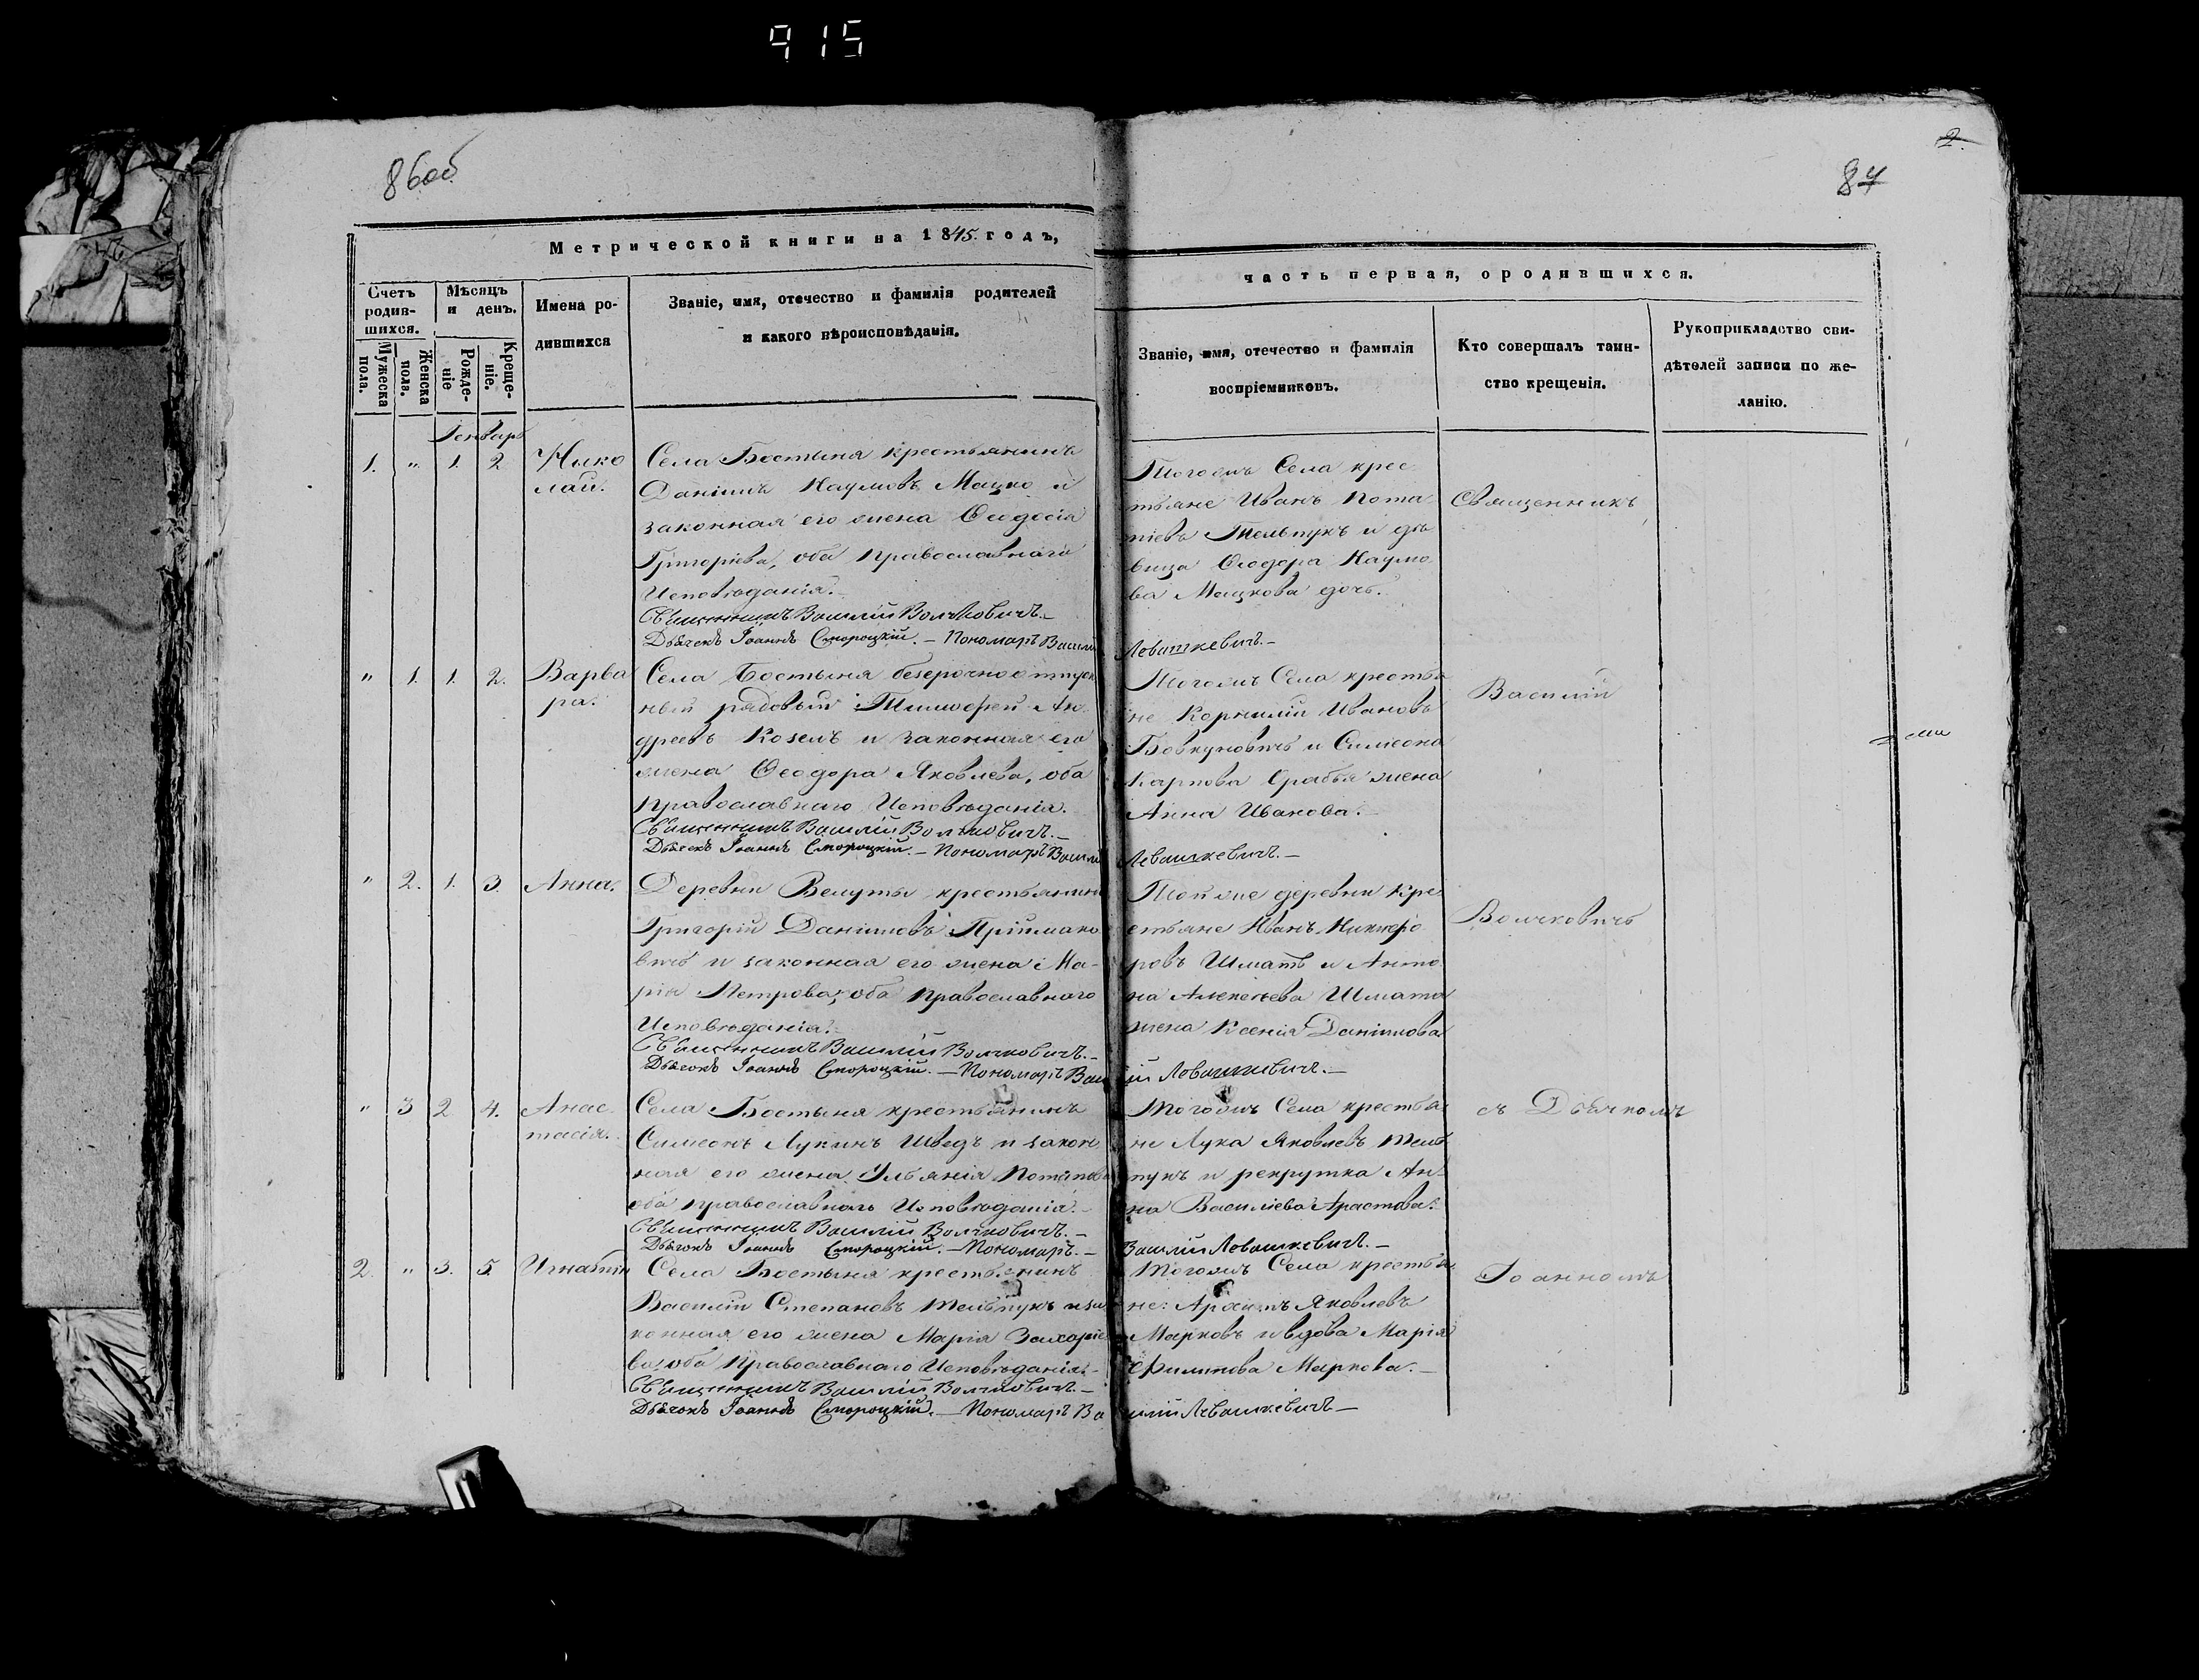 915
86об
2.
87
Метрической книги на 1845. годъ,
часть первая, о родившихся.
Счетъ родив-шихся.
Мужеска пола.
Женска пола.
Мѣсяцъ и день.
Рожде-ніе
Креще-ніе.
Имена ро-
дившихся
Званіе, имя, отечество и фамилія родителей
и какого вѣроисповѣданія.
Званіе, имя, отечество и фамилія
воспріемниковъ.
Кто совершалъ таин-
ство крещенія.
Рукоприкладство сви-
дѣтелей записи по же-
ланію.
Генварь
1. " 1. 2 Нико
лай.
Села Бостыня крестьянинъ
Даніилъ Наумовъ Мацко и
законная его жена Ѳеодосія
Григоріева, оба Православнаго
Исповѣданія.
Священникъ Василій Волчковичъ.
Дьячекъ Іоаннъ Смороцкій. – Пономаръ Василій Левашкевичъ. –
Тогожъ Села крес
тьяне Иванъ Пота
піевъ Тельпукъ и дѣ
вица Ѳеодора Наумо
ва Мацкова дочь.
Священникъ
" 1. 1. 2. Варва
ра.
Села Бостыня безсрочноотпуск
ный рядовый Тимоѳей Ан
дреевъ Козелъ и законная его
жена Ѳеодора Яковлева, оба
Православнаго Исповѣданія.
Священникъ Василій Волчковичъ. –
Дьячекъ Іоаннъ Смороцкій. – Пономаръ Василій Левашкевичъ. –
Тогожъ Села крестья
не Корнилій Ивановъ
и Симеона
Карпова жена
Анна Иванова.
Василій
" 2. 1. 3. Анна.
Деревни Велуты крестьянинъ
Григорій Даніиловъ Пріймако
вичъ и законная его жена Ма-
рія Петрова, оба Православнаго
Исповѣданія.
Священникъ Василій Волчковичъ. –
Дьячокъ Іоаннъ Смороцкій. – Пономаръ Василій Левашкевичъ. –
Тойже деревни Кре
стьяне Иванъ Никифо
ровъ Шматъ и Анто
на Алексѣева Шмата
жена Ксенія Даніилова
Волчковичъ
" 3 2 4. Анас
тасія.
Села Бостыня крестьянинъ
Симеонъ Лукинъ Шведъ и закон
ная его жена Ульянія Потапова
оба православнаго Исповѣданія. –
Священникъ Василій Волчковичъ. –
Дьячокъ Іоаннъ Смороцкій. – Пономаръ. – Василій Левашкевичъ. –
Тогожъ Села крестья
не Лука Яковлевъ Тель
пукъ и рекрутка Ан
на Василіева
съ Дьячкомъ
2. " 3. 5. Игнатій
Села Бостыня крестьянинъ
Василій Степановъ Тельпукъ и за
конная его жена Марія Захаріе
ва, оба Православнаго Исповѣданія. –
Священникъ Василій Волчковичъ. –
Дьячокъ Іоаннъ Смороцкій. – Пономаръ Василій Левашкевичъ –
Тогожъ Села крестья
не: Яковлевъ
Марковъ и вдова Марія
Филипова Маркова. –
Іоанномъ